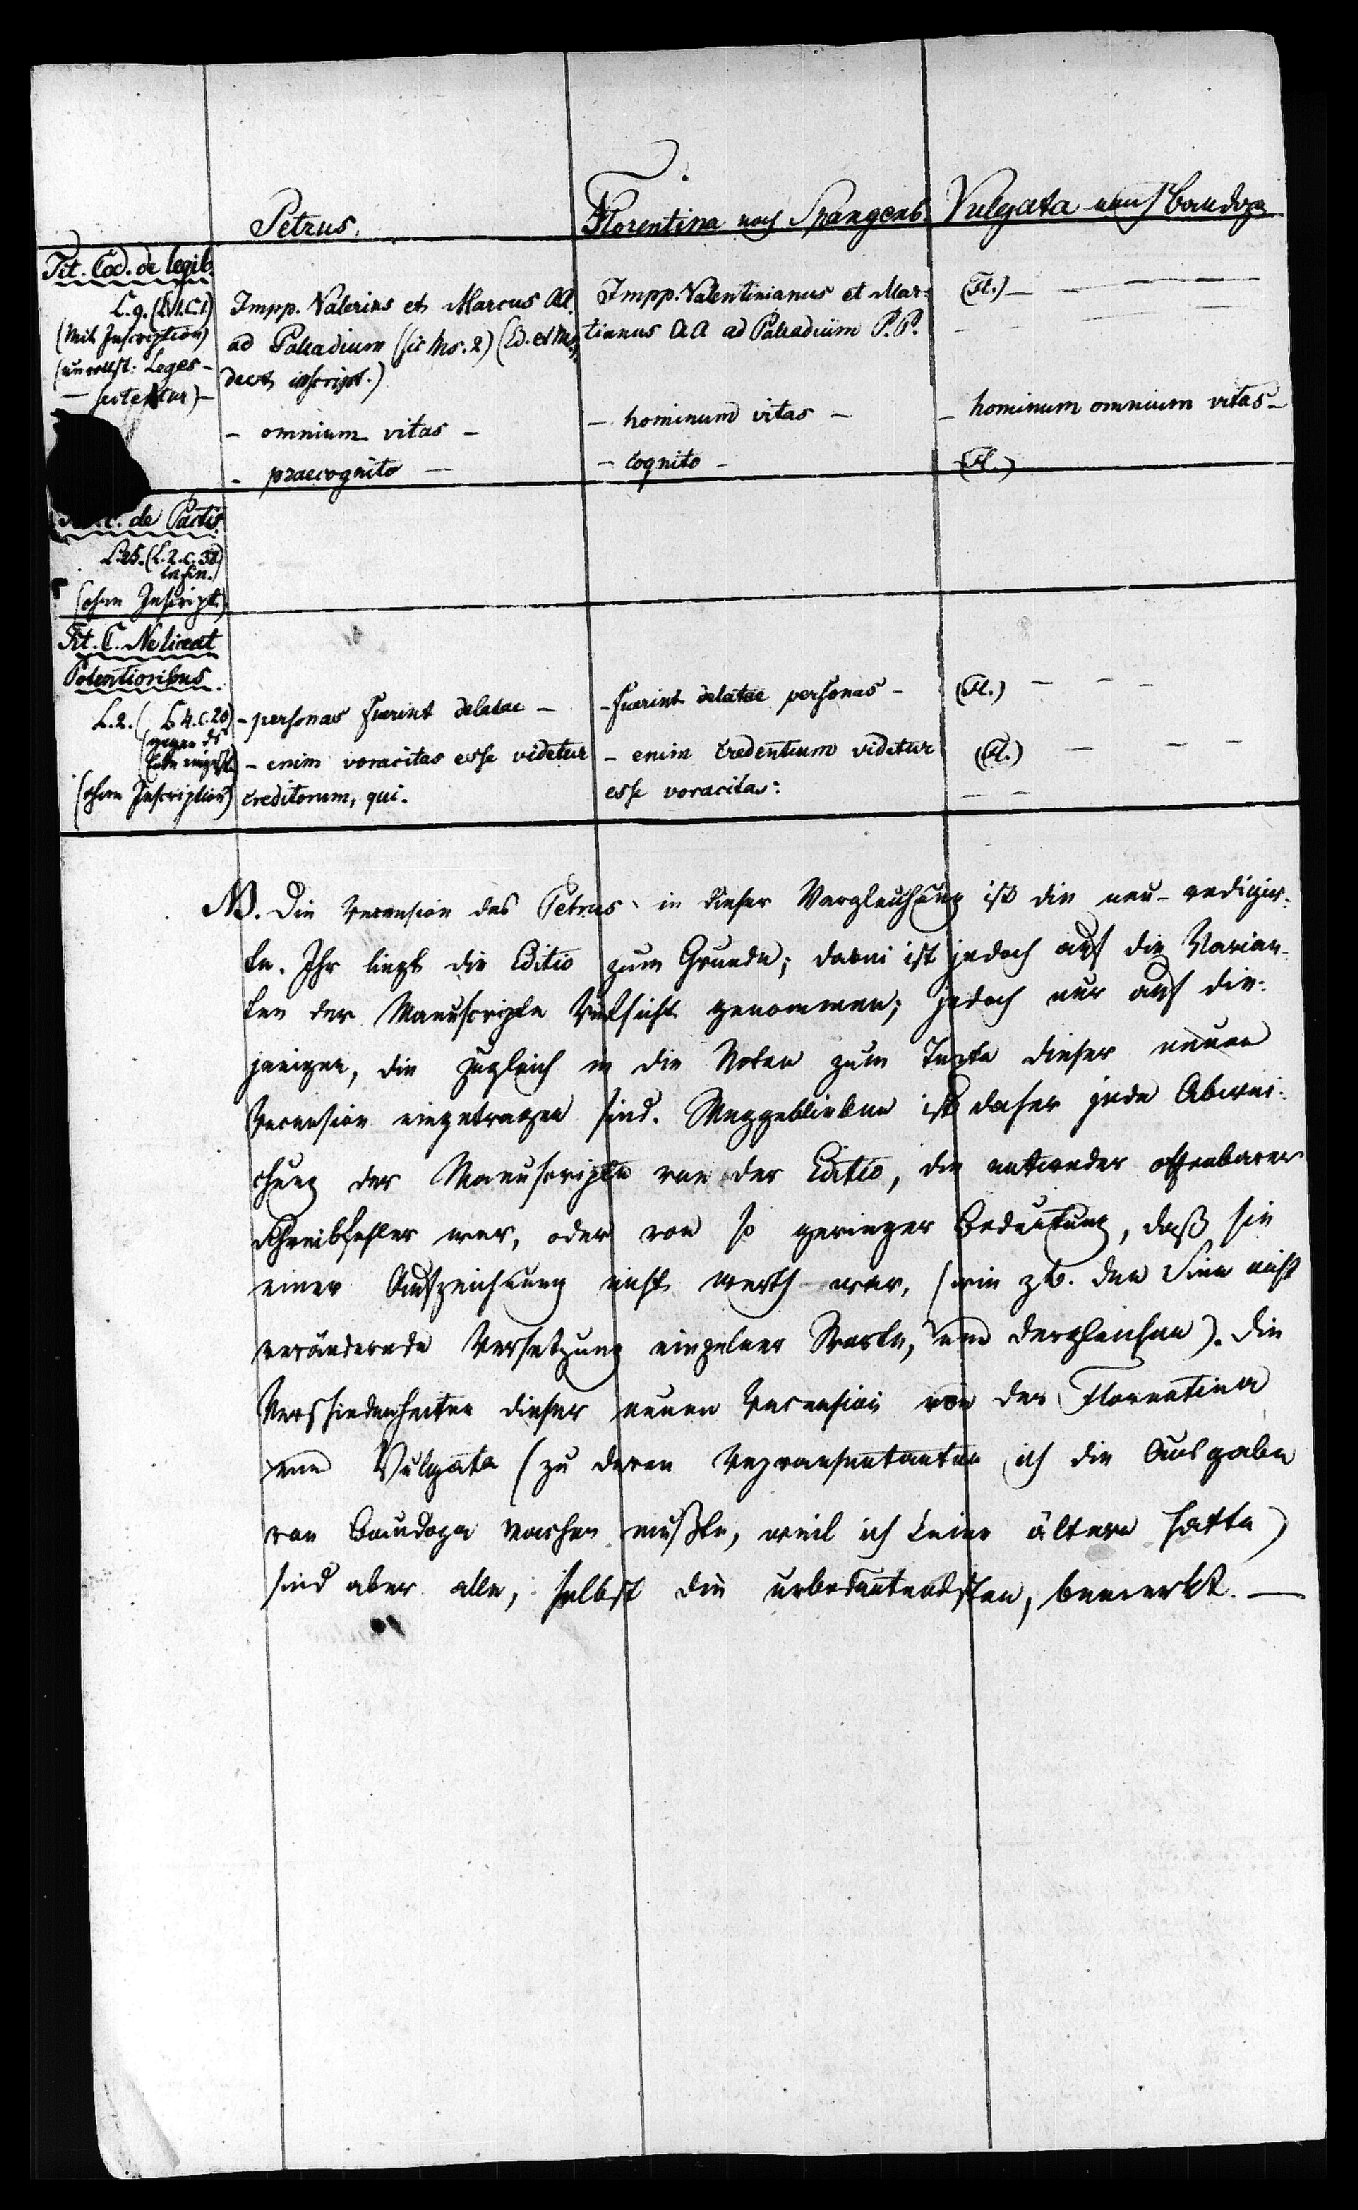 Petrus.
Florentina nach Spangenb.
Vulgata nach Baudoza
Tit. Cod. de legib.
L. 9. (L. 1. C. 1)
(Mit Inscription)
(unvollst: Leges –
Impp. Valerius et Marcus AA.
ad Palladium (sic Ms. 2) (Ed. et Ms.
deest inscript.)
– omnium vitas –
– praecognito –
Impp. Valentinianus et Mar-
tianus AA ad Palladium P. P.
– hominum vitas –
– cognito –
(Fl.) – – – –
– hominum omnium vitas –
(Fl.)
de Pactis.
L. 25. (L. 2. c. 38)
in fin.)
(ohne Inscript.)
Tit. C. Ne liceat
Potentioribus.
L. 2. ( L. 4. c. 20)
gegen
(ohne Inscription)
– personas fuerint delatae –
– enim voracitas esse videtur
creditorum, qui.
– fuerint delatae personas –
– enim credentium videtur
esse voracitas:
(Fl.) – – –
(Fl.) – – –
– –
NB. Die Recension des Petrus in dieser Vergleichung ist die neu-redigir-
te. Ihr liegt die Editio zum Grunde; dabei ist jedoch auf die Varian-
ten der Manuscripte Rücksicht genommen; jedoch nur auf die-
jenigen, die zugleich in die Noten zum Texte dieser neuen
Recension eingetragen sind. Weggeblieben ist daher jede Abwei-
chung der Manuscripte von der Editio, die entweder offenbarer
Schreibfehler war, oder von so geringer Bedeutung, daß sie
einer Aufzeichnung nicht werth war, (wie zb. den Sinn nicht
verändernde Versetzung einzelner Worte, und dergleichen). Die
Verschiedenheiten dieser neuen Recension von der Florentina
und Vulgata (zu deren Repraesentanten ich die Ausgabe
von Baudoza machen mußte, weil ich keine ältere hatte)
sind aber alle, selbst die unbedeutendsten, bemerkt. –